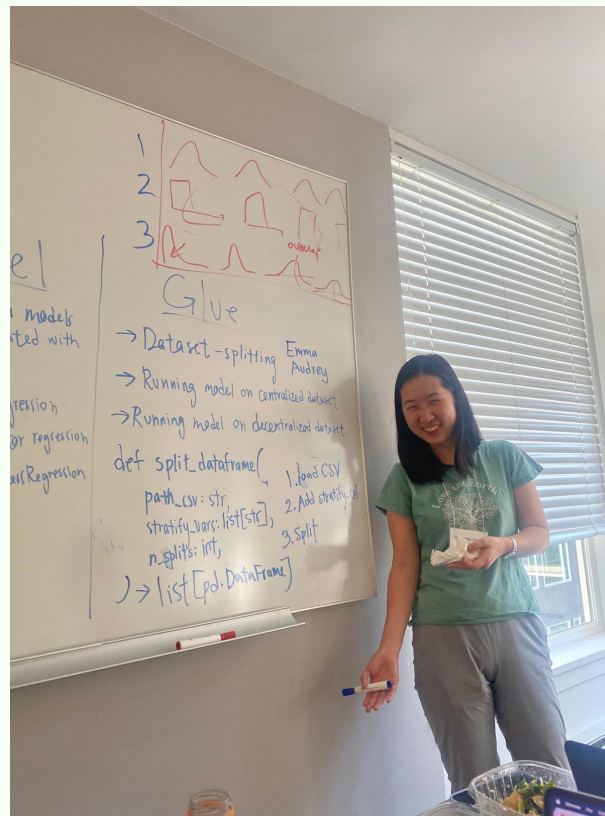 1
2
3
overlap
el
models
ted with
ression
or regression
essRegression
Glue
→ Dataset-splitting Emma
Audrey
→ Running model on centralized dataset
→ Running model on decentralized dataset
def split_dataframe(
path_csv: str,
stratify_vars: list[str],
n_splits: int,
) → list[pd.DataFrame]
1. load CSV
2. Add stratify_col
3. Split